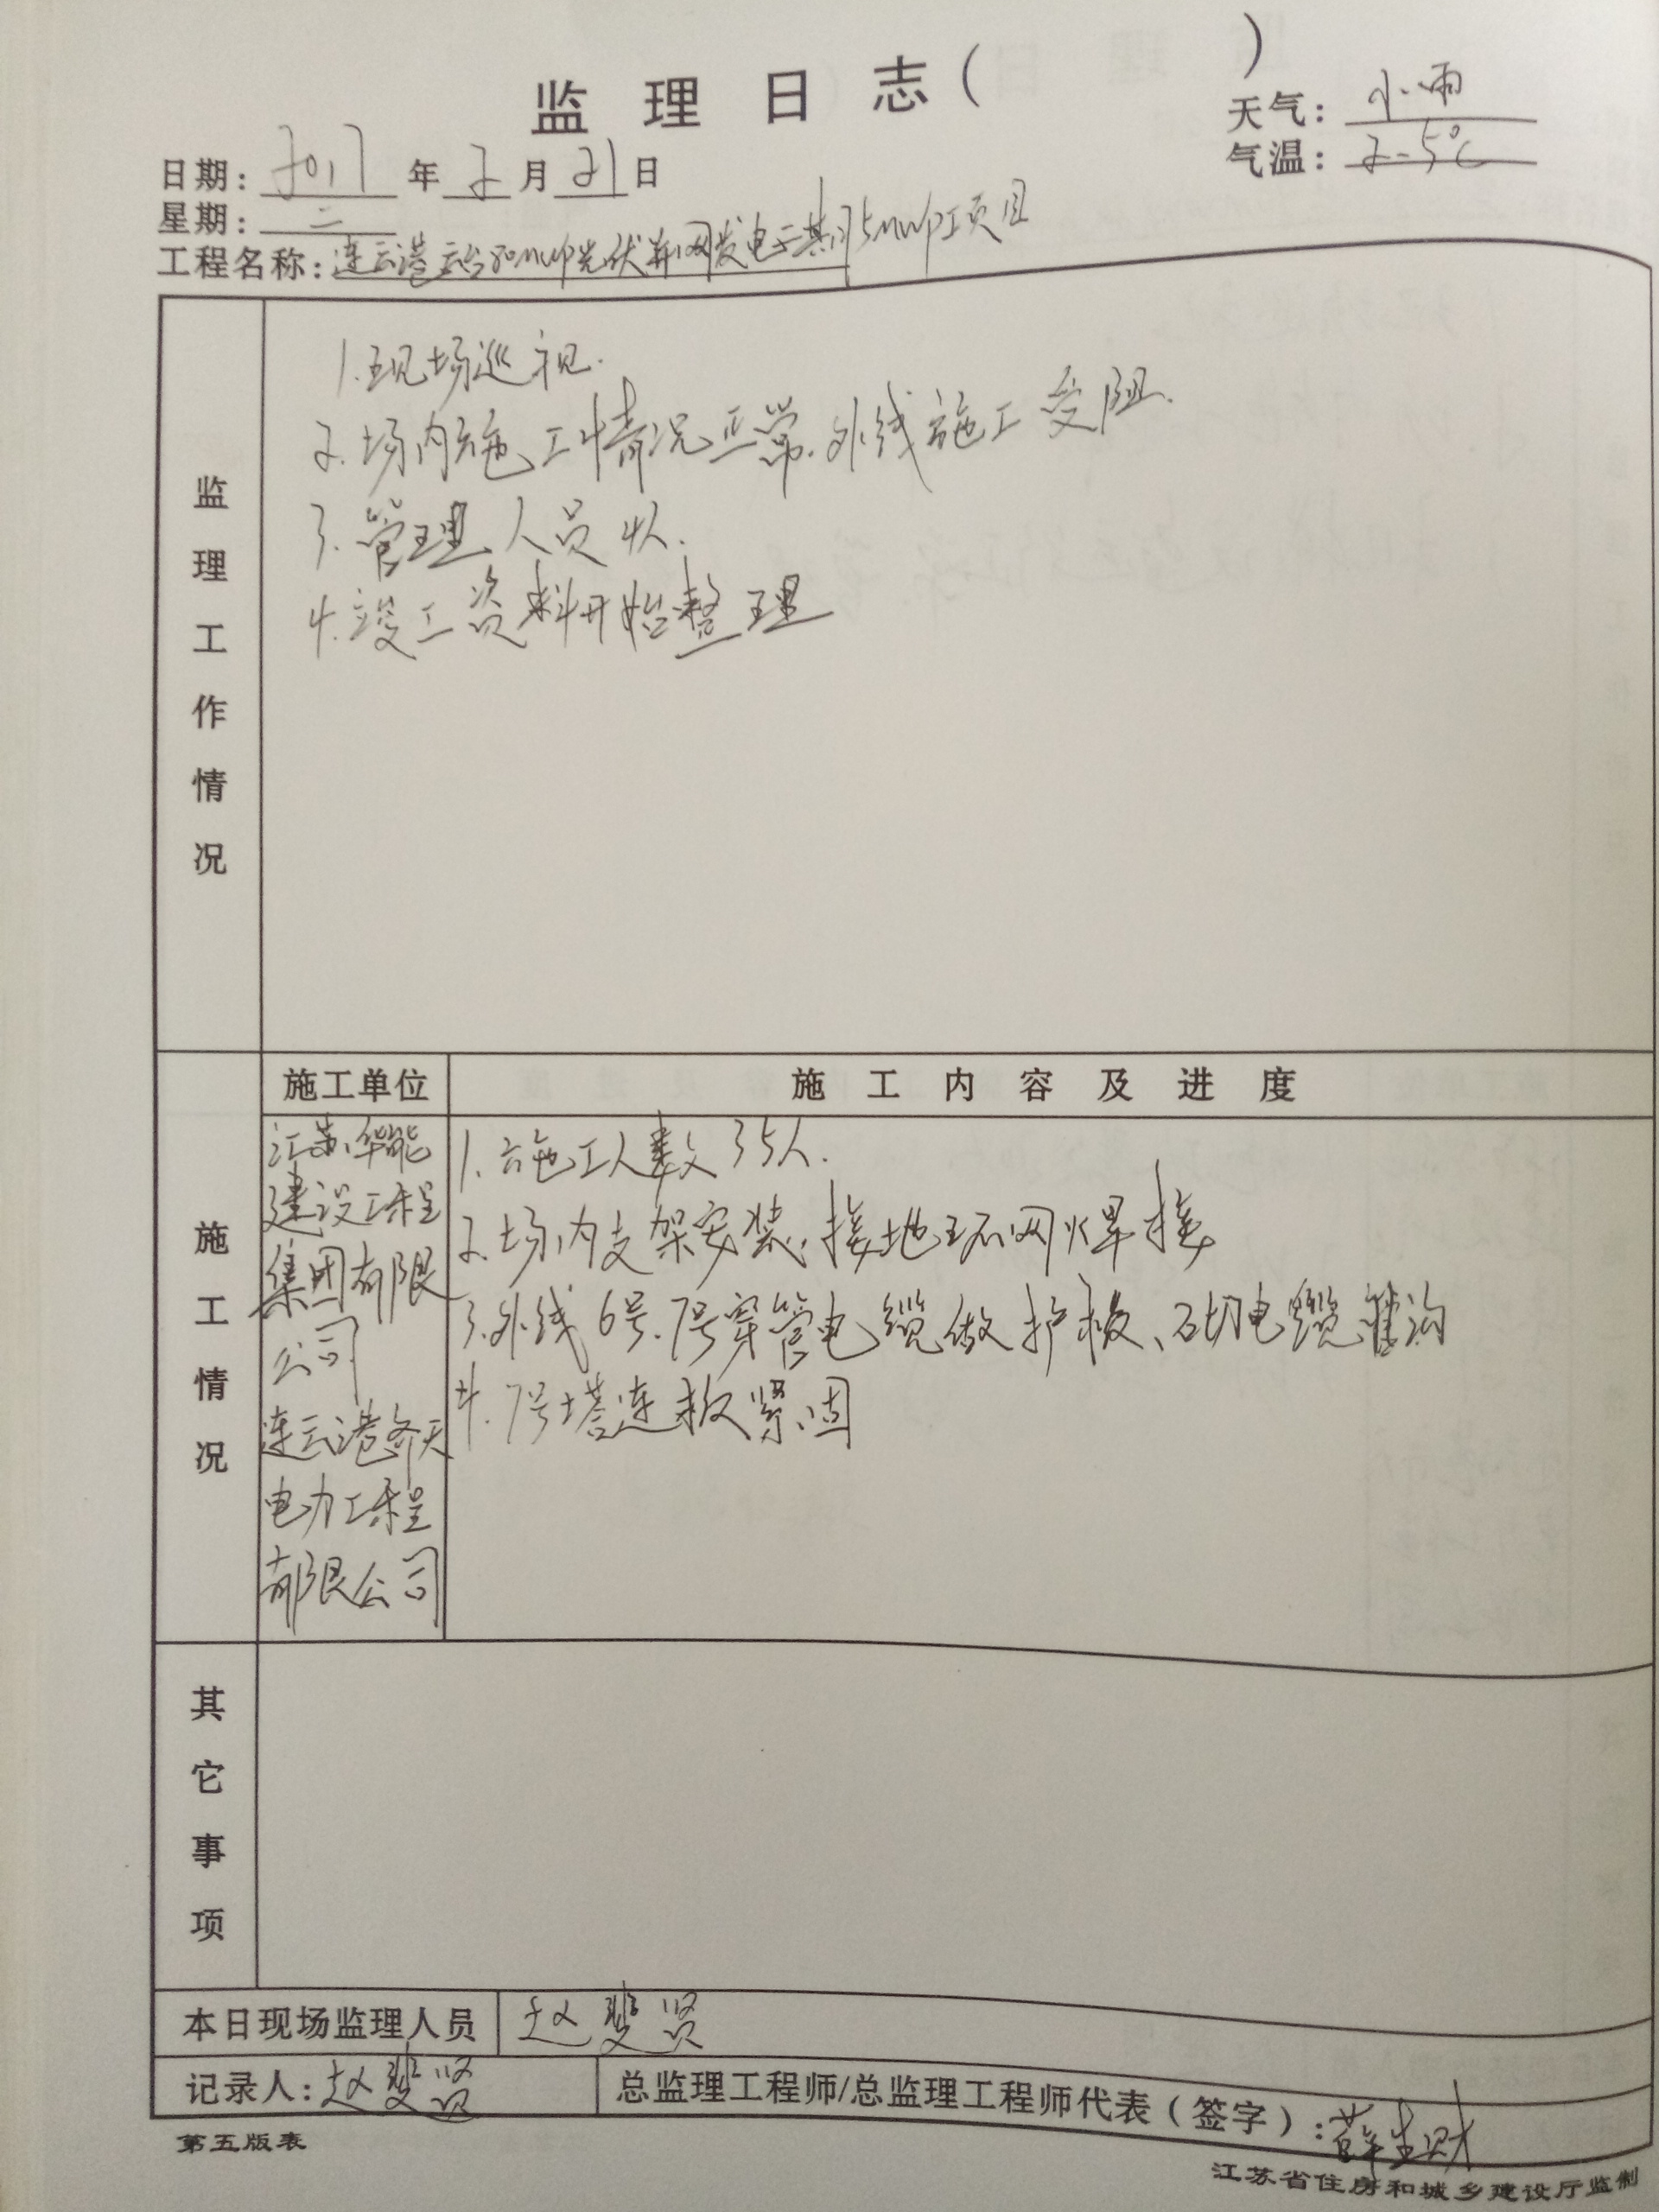 监理日志(　　　)
天气：小雨
日期：2017年2月21日
气温：2-5℃
星期：二
工程名称：连云港云台80MWp光伏并网发电二期35MWp工项目
监理工作情况
1.现场巡视.
2.场内施工情况正常.外线施工受阻.
3.管理人员4人.
4.竣工资料开始整理
施工情况
施工单位
施工内容及进度
江苏华能
建设工程
集团有限
公司
连云港
电力工程
有限公司
1.施工人数35人.
2.场内支架安装、接地环网焊接
3.外线6号、7号穿管电缆做护板、砌电缆沟
4.7号塔连板紧固
其它事项
本日现场监理人员
赵斐贤
记录人：赵斐贤
总监理工程师/总监理工程师代表（签字）：薛生财
第五版表
江苏省住房和城乡建设厅监制